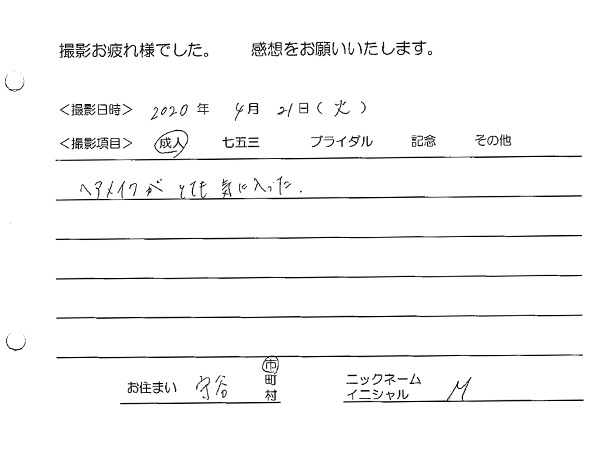 撮影お疲れ様でした。 感想をお願いいたします。
<撮影日時> 2020年 4月 21日(火)
<撮影項目> 成人 七五三 ブライダル 記念 その他
ヘアメイクが とても 気に入った.
お住まい 守谷 市 町 村 ニックネーム イニシャル M